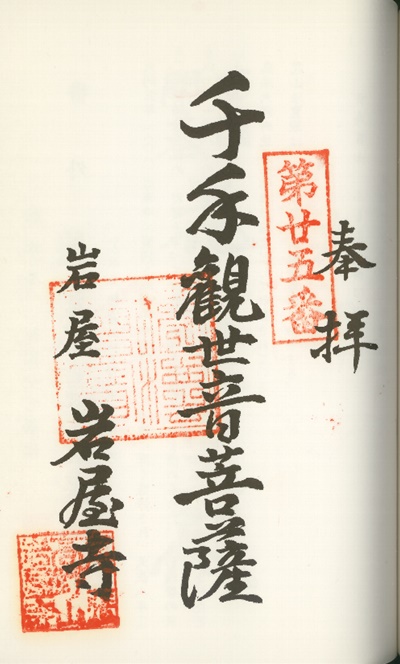 奉拝
第廿五番
千手観世音菩薩
岩屋
岩屋寺